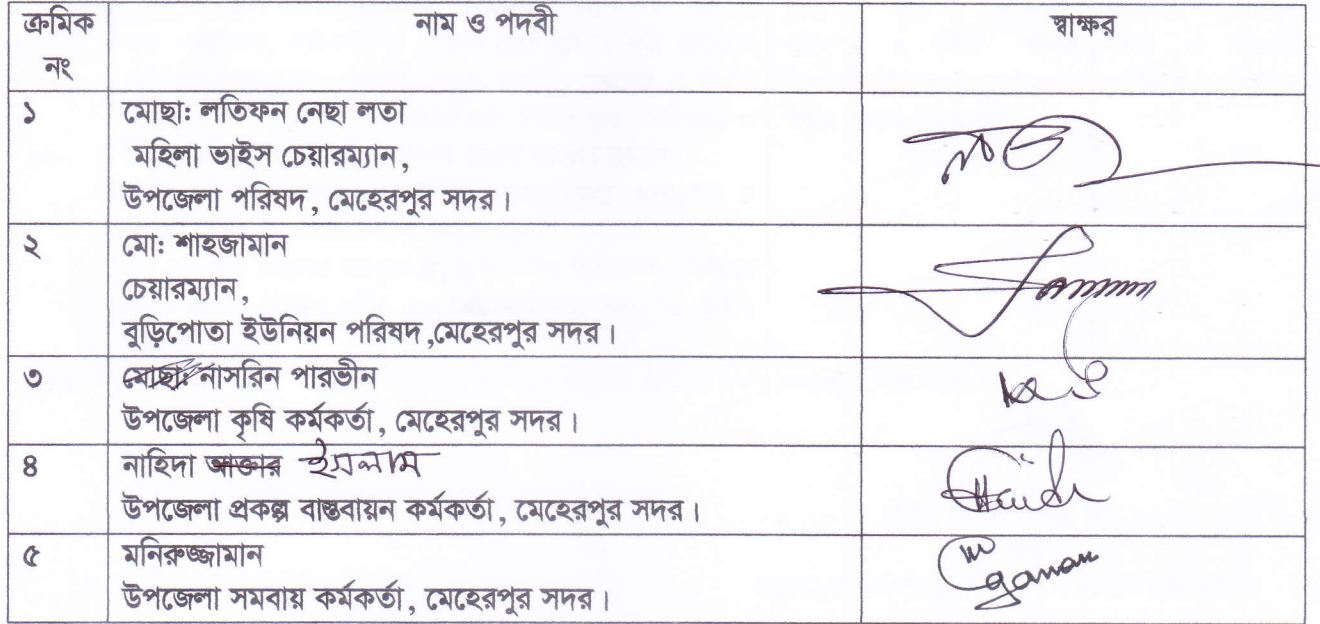 ক্রমিক নং নাম ও পদবী স্বাক্ষর
১ মোছা: লতিফন নেছা লতা
মহিলা ভাইস চেয়ারম্যান,
উপজেলা পরিষদ, মেহেরপুর সদর।
২ মো: শাহজামান
চেয়ারম্যান,
বুড়িপোতা ইউনিয়ন পরিষদ,মেহেরপুর সদর।
৩ মোছা: নাসরিন পারভীন
উপজেলা কৃষি কর্মকর্তা, মেহেরপুর সদর।
৪ নাহিদা আক্তার ইসলাম
উপজেলা প্রকল্প বাস্তবায়ন কর্মকর্তা, মেহেরপুর সদর।
৫ মনিরুজ্জামান
উপজেলা সমবায় কর্মকর্তা, মেহেরপুর সদর।